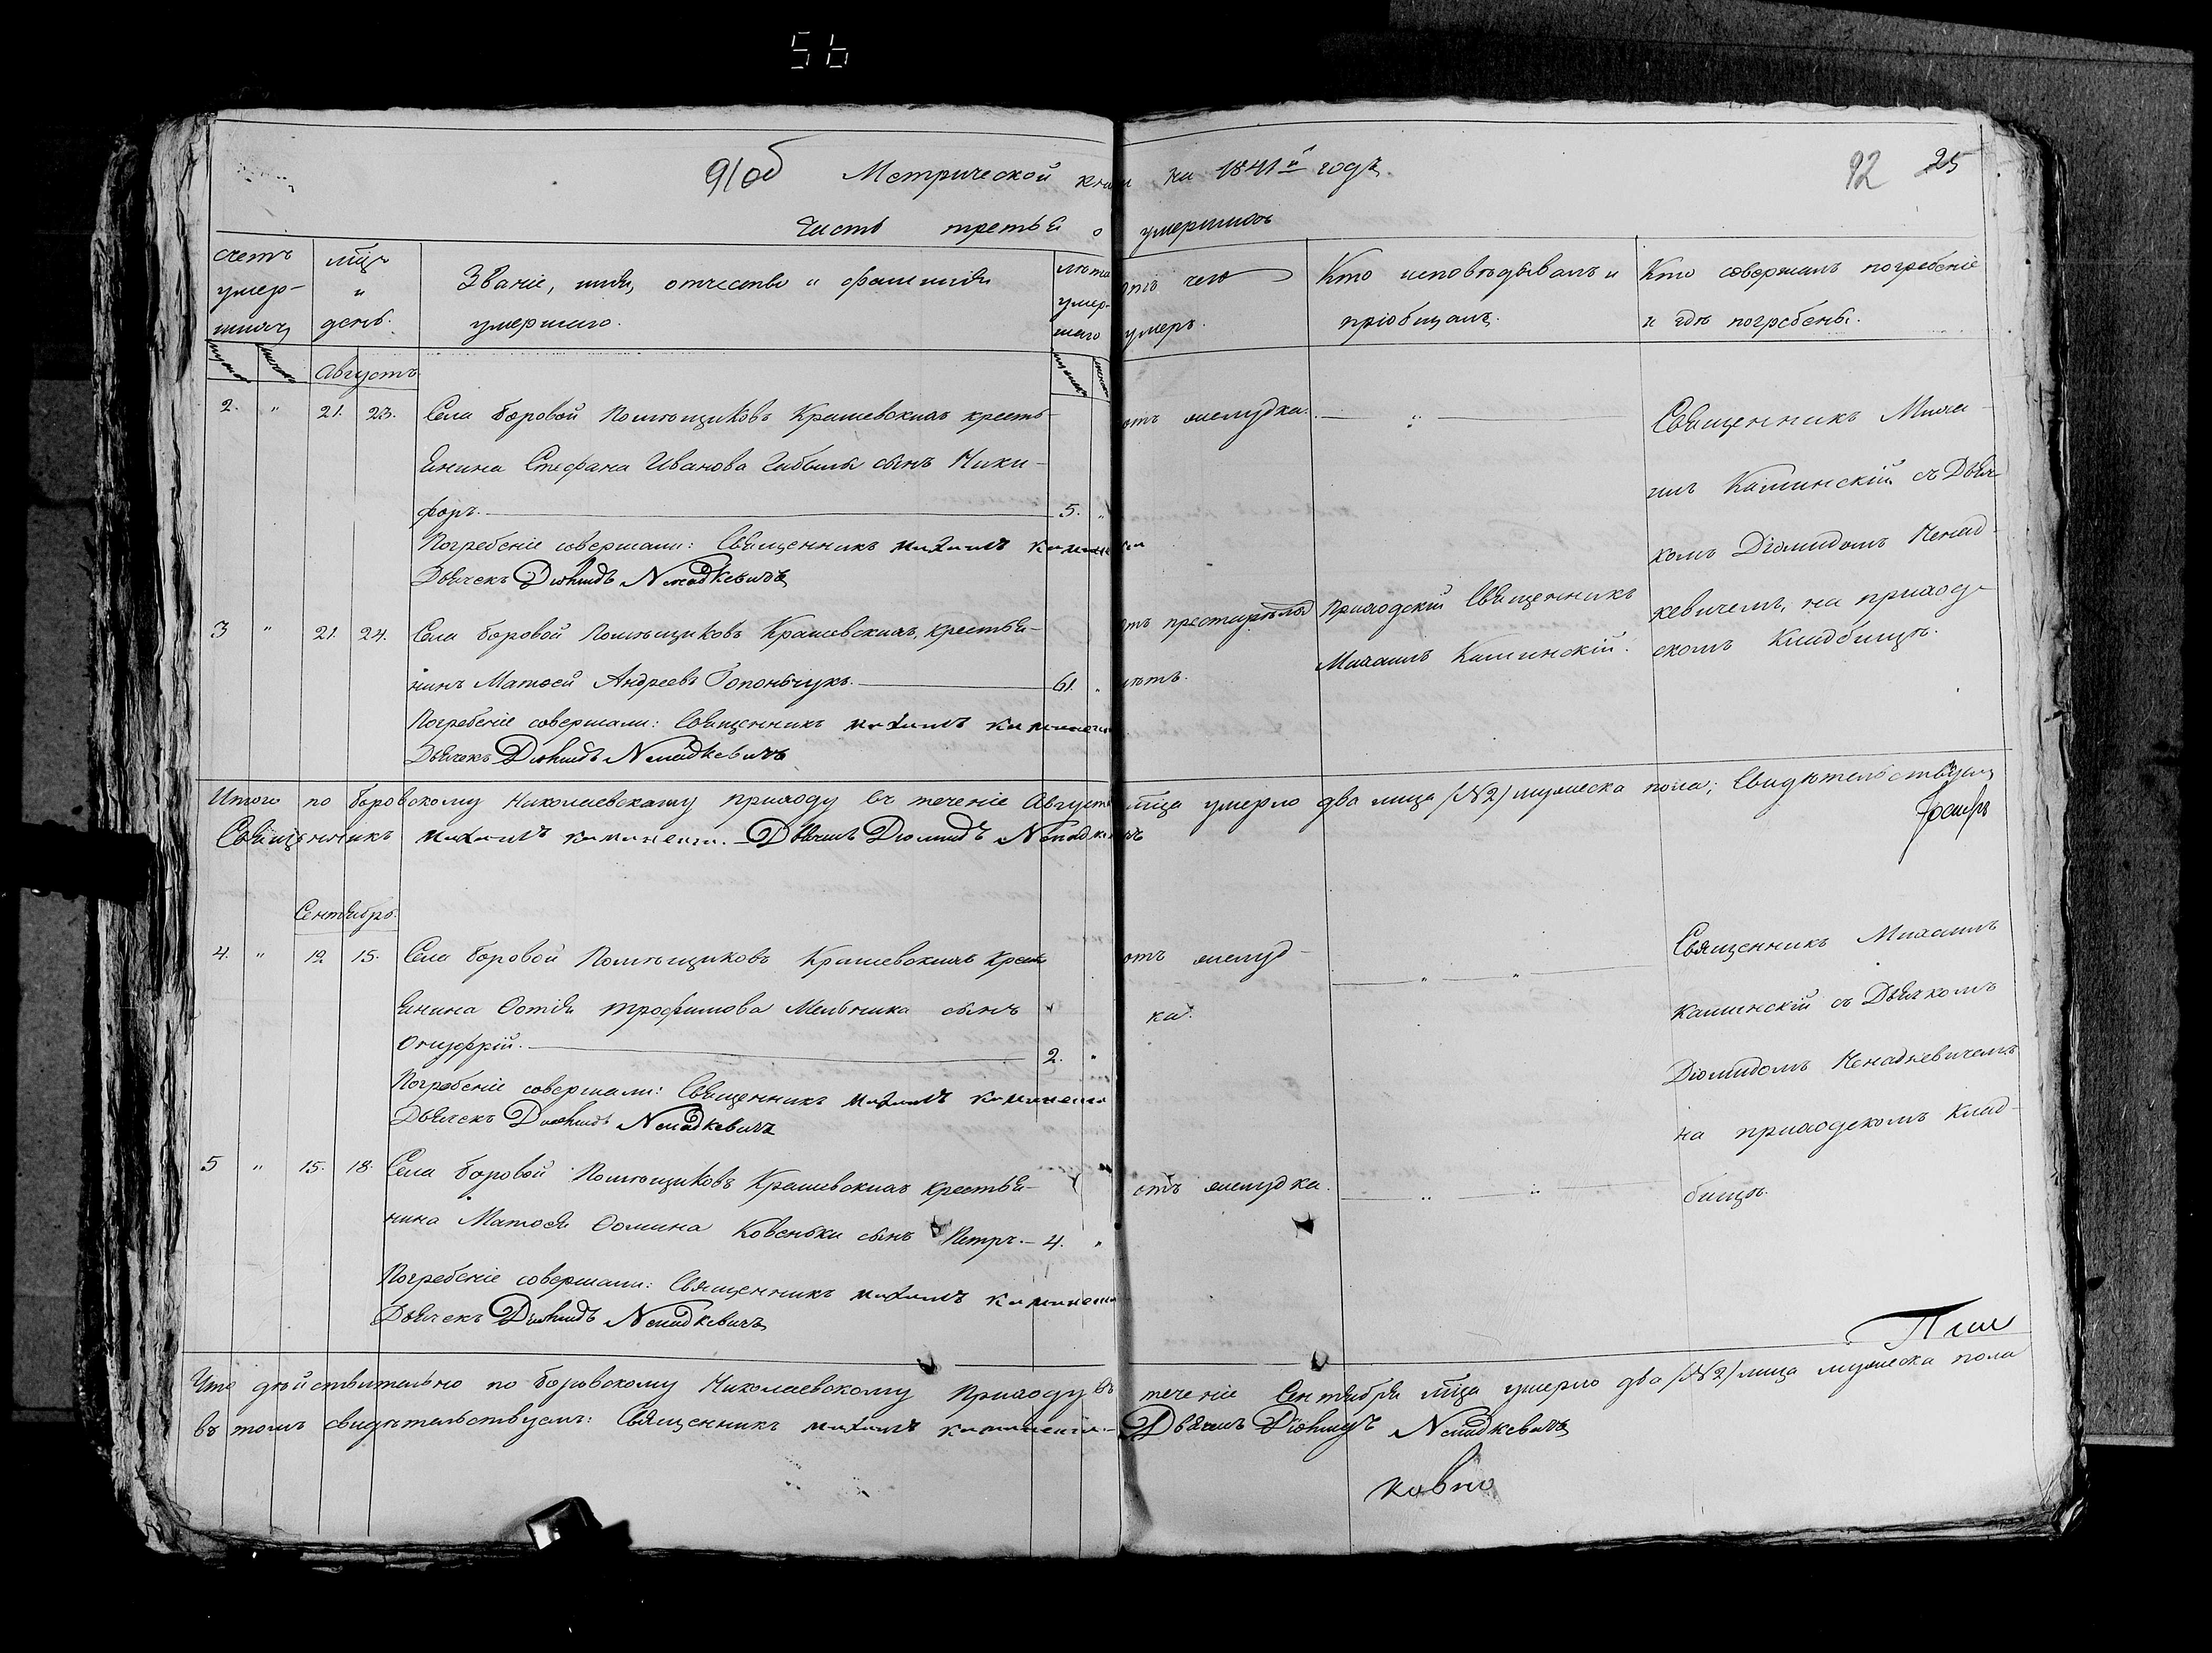 56
91об Метрической книги на 1841й годъ. 92 25
Часть третья о умершихъ
Счетъ умер-шихъ
мѣць и день.
Званіе, имя, отчество и фамилія умершаго.
лѣта умер-шаго
отъ чего умеръ.
Кто исповѣдывалъ и пріобщалъ.
Кто совершалъ погребеніе и гдѣ погребены.
Августъ
2. " 21. 23. Села Боровой Помѣщиковъ Крашевскихъ кресть-
янина Стефана Иванова сынъ Ники-
форъ. 5. "
отъ желудка. "
Погребеніе совершали: Священникъ Михаилъ Каминскій
Дьячекъ Діомидъ Ненадкевичъ
Священникъ Миха-
илъ Каминскій съ Дьяч-
комъ Діомидомъ Ненад-
кевичемъ, на приход-
скомъ Кладбищѣ.
3 " 21. 24. Села Боровой Помѣщиковъ Крашевскихъ, крестья-
нинъ Матѳей Андреевъ 61. "
отъ престарѣлыхъ
лѣтъ.
Приходскій Священникъ
Михаилъ Каминскій.
Погребеніе совершали: Священникъ Михаилъ Каминскій
Дьячекъ Діомидъ Ненадкевичъ
Итого по Боровскому Николаевскому приходу въ теченіе Августа мѣца умерло два лица /№2/ мужеска пола; Свидѣтельствуемъ
Священникъ Михаилъ Каминскій. Дьячекъ Діомидъ Ненадкевичъ
Сентябрь.
4. " 12 15. Села Боровой Помѣщиковъ Крашевскихъ Кресть
янина Ѳотія Трофимова Мельника сынъ
Онуфрій. 2. "
отъ желуд-
ка. " "
Погребеніе совершали: Священникъ Михаилъ Каминскій
Дьячекъ Діомидъ Ненадкевичъ
Священникъ Михаилъ
Каминскій съ Дьячкомъ
Діомидомъ Ненадкевичемъ
на приходскомъ Клад-
бищѣ.
5 " 15. 18. Села Боровой Помѣщиковъ Крашевскихъ крестья-
нина Матѳея Ѳомина Ковеньки сынъ Петръ. 4. "
отъ желудка. " "
Погребеніе совершали: Священникъ Михаилъ Каминскій
Дьячекъ Діомидъ Ненадкевичъ
Что дѣйствительно по Боровскому Николаевскому Приходу въ теченіе Сентября мѣца умерло два /№2/ лица мужеска пола
въ томъ свидѣтельствуемъ: Священникъ Михаилъ Каминскій. Дьячекъ Діомидъ Ненадкевичъ